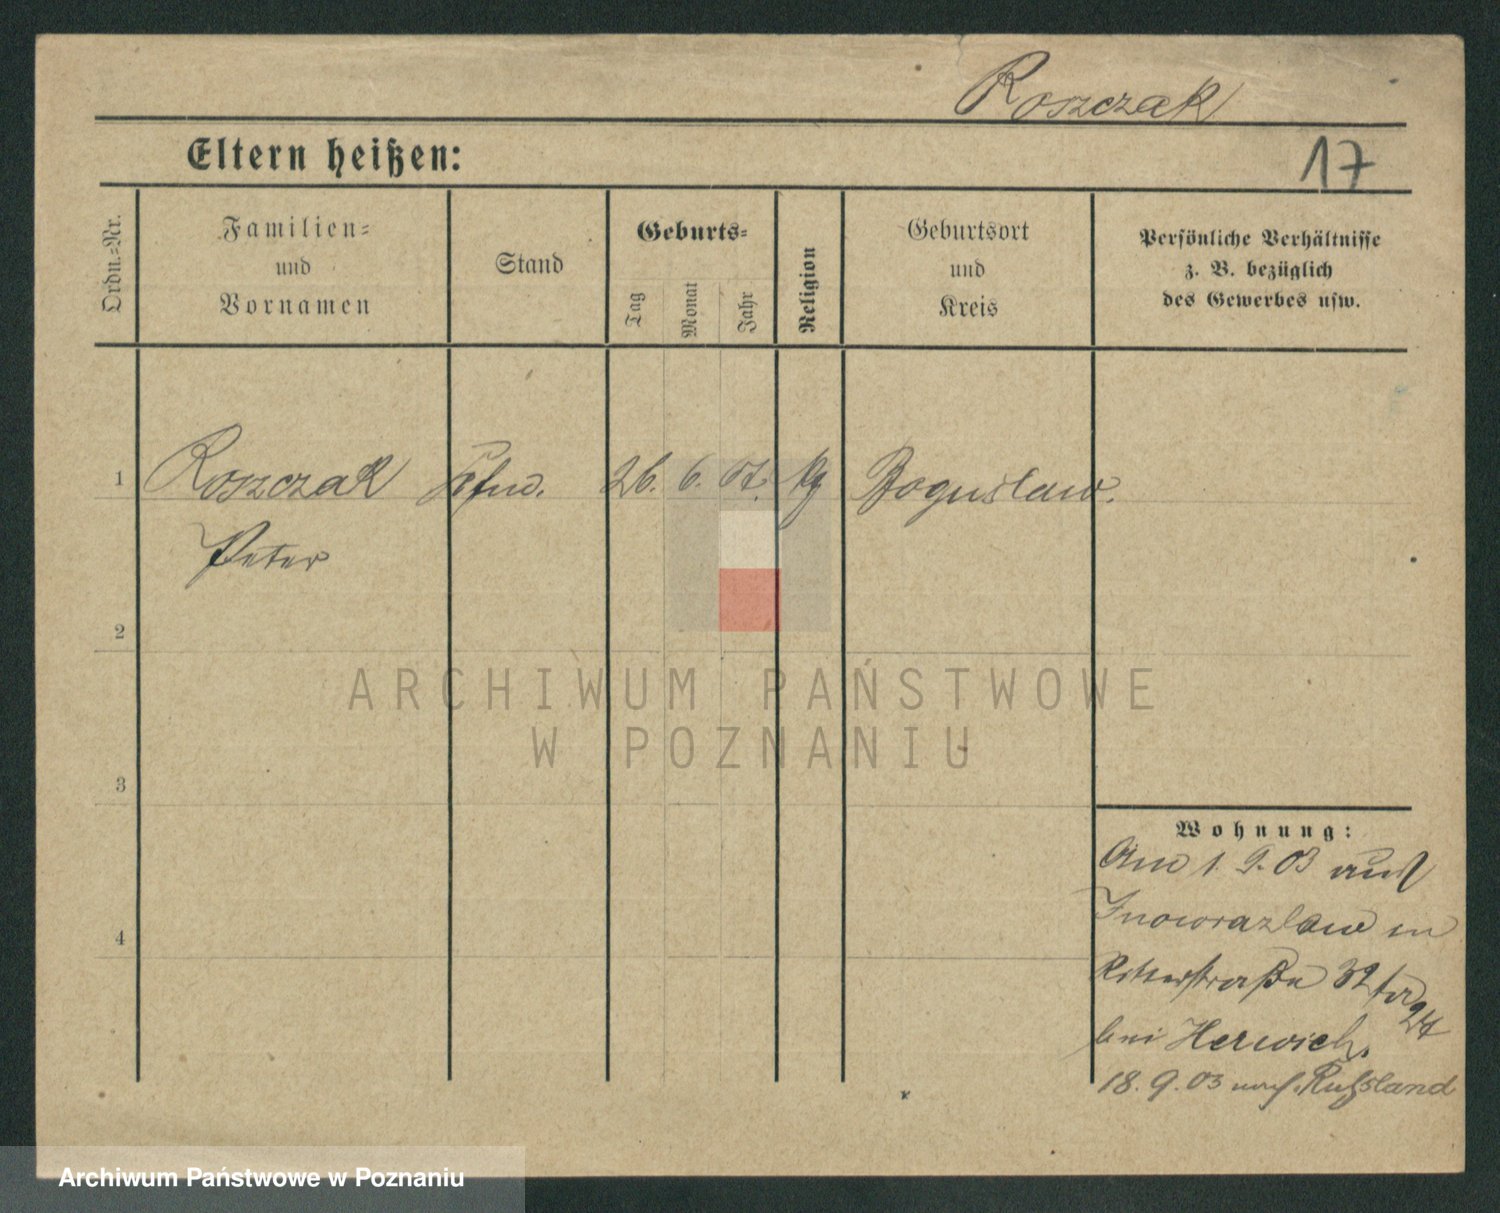 Roszczak
Eltern heißen:
17
Ordn.=Nr.
Familien=
und
Vornamen
Stand
Geburts=
Tag
Monat
Jahr
Religion
Geburtsort
und
Kreis
Persönliche Verhältnisse
z. B. bezüglich
des Gewerbes usw.
1 Roszczak Kfm. 26. 6. kg Boguslaw.
Peter
2
3
4
ARCHIWUM PAŃSTWOWE
W POZNANIU
Wohnung:
Am 1. 9. 03 aus
Inowrazlaw in
Ritterstraße 32
24
bei Herwich.
18. 9. 03 nach Rußland
Archiwum Państwowe w Poznaniu